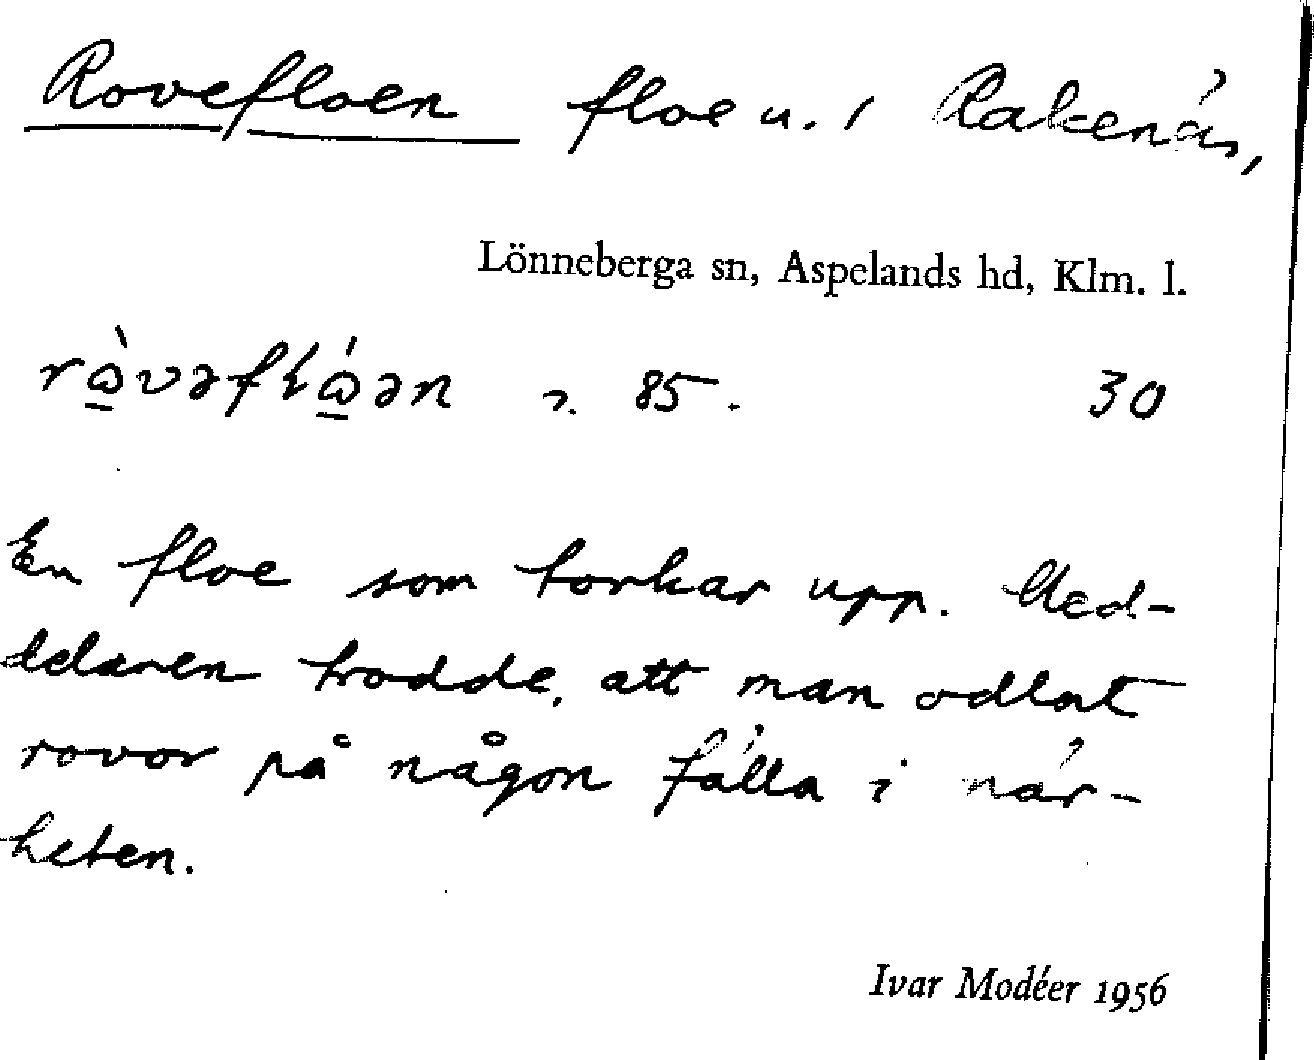 Rovefloen floe u. / Rakenäs,
Lönneberga sn, Aspelands hd, Klm. l.
rὼ̲vəflώ̲ən 85. 30
En floe som torkar upp. Med-
delaren trodde, att man odlat
rovor på någon fälla i när-
heten.
Ivar Modéer 1956